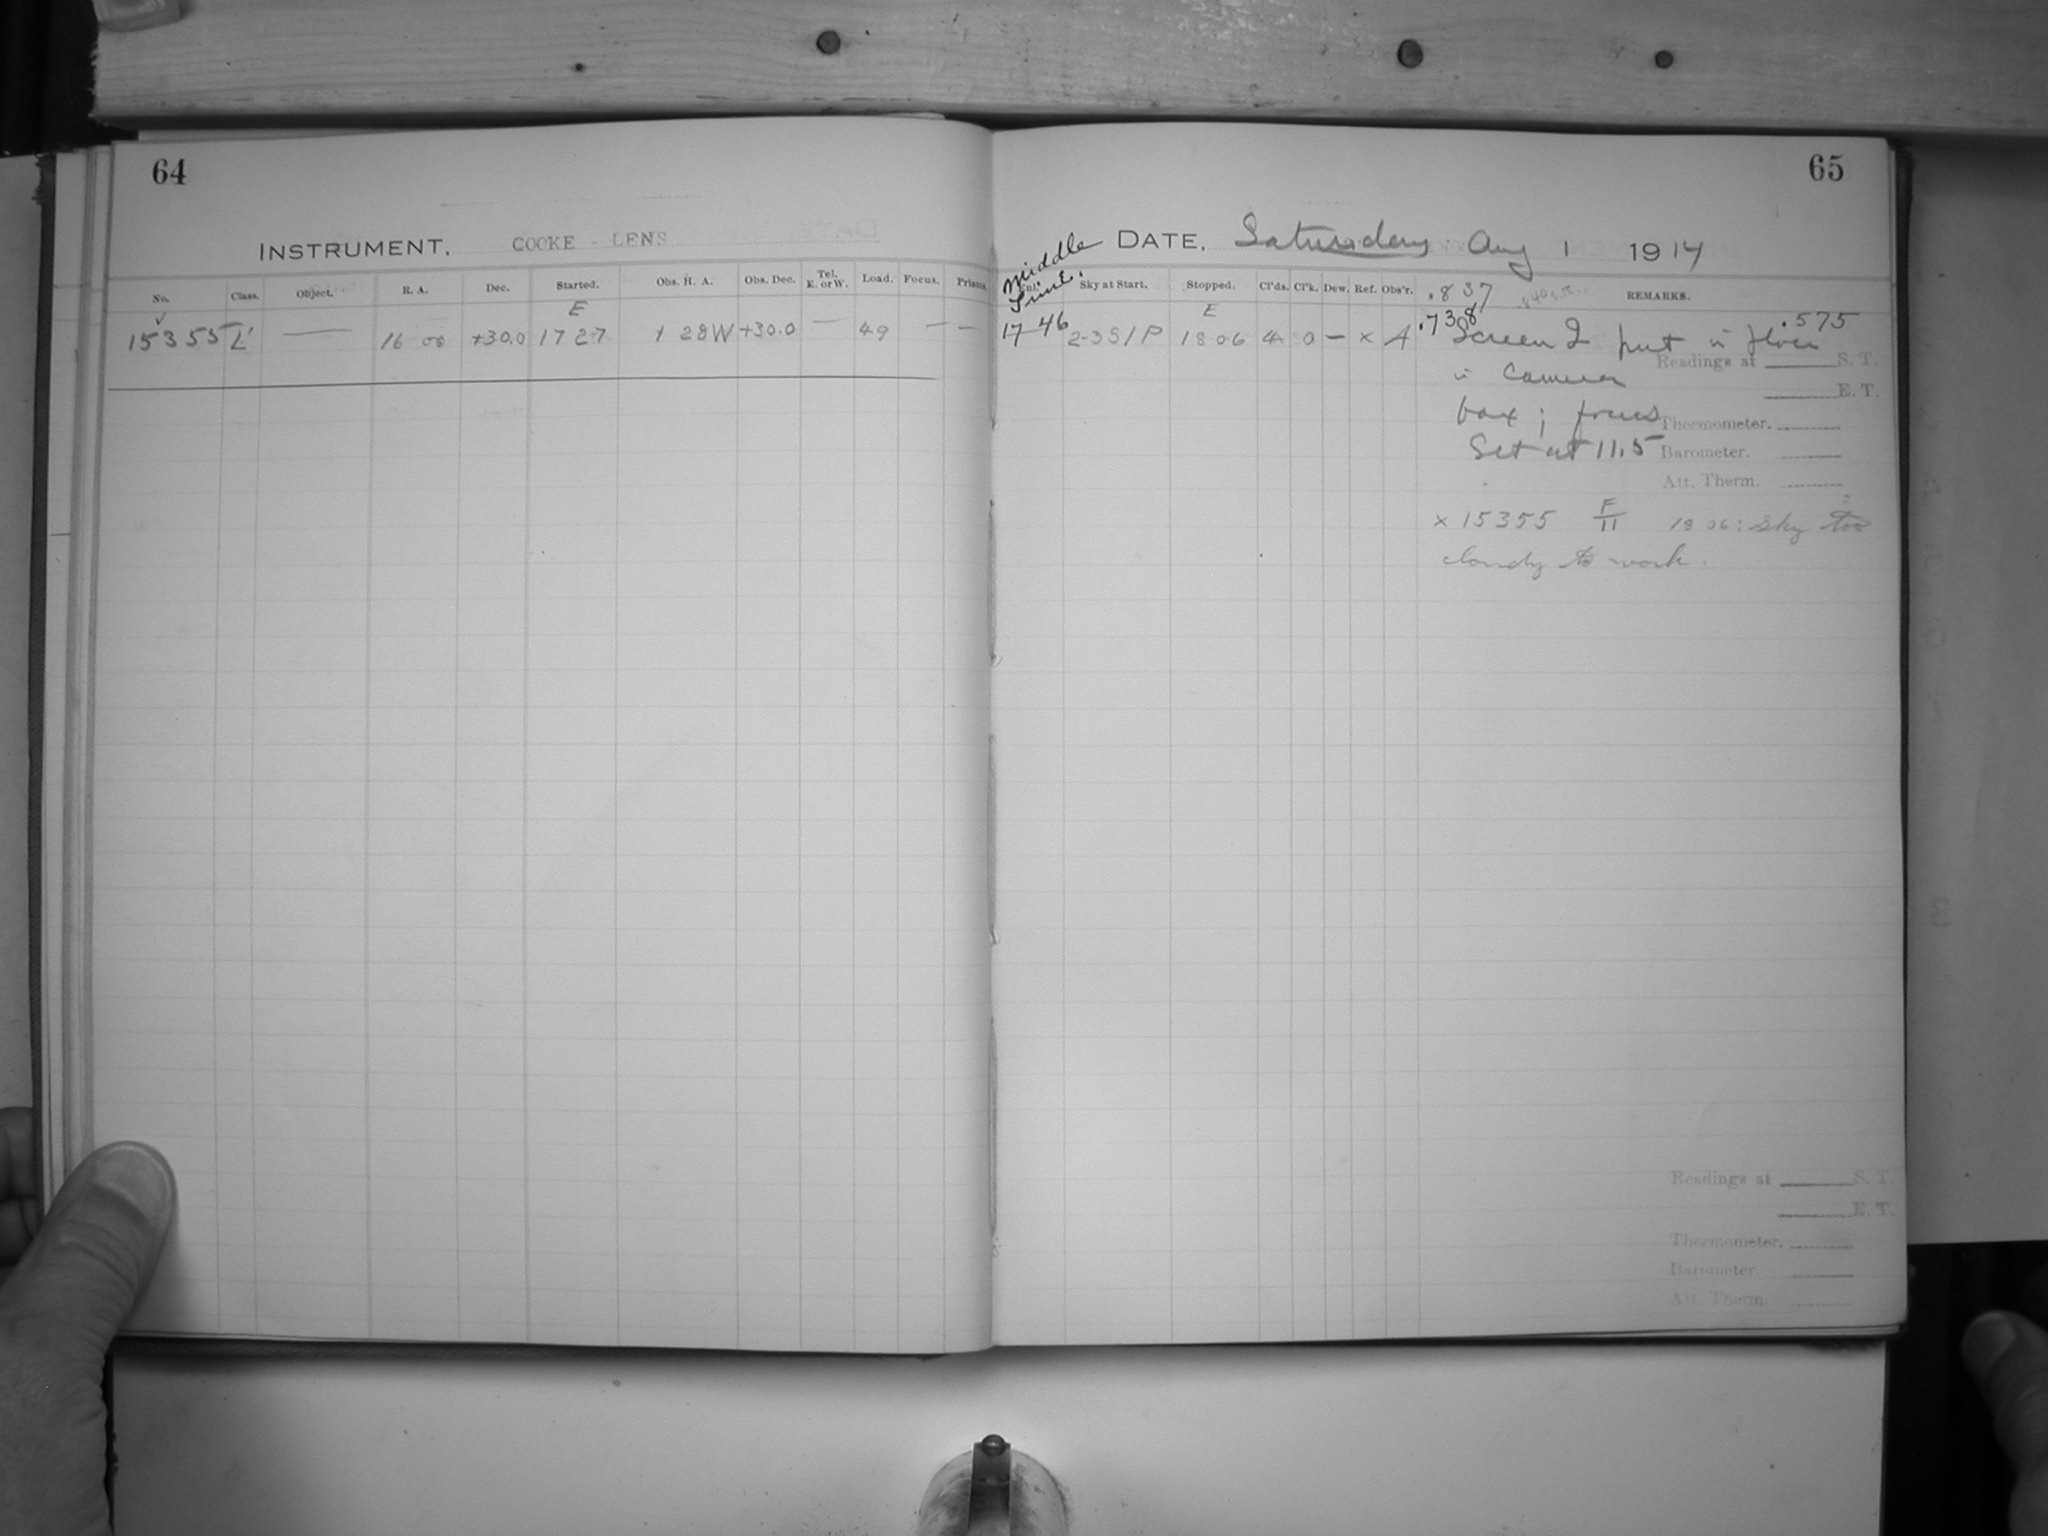 64
INSTRUMENT, COOKE - LENS
No. Class. Object. R. A. Dec. Started. Obs. H. A. Obs. Dec. Tel. E. or W. Load. Focus. Prisms.
E
15355 L' — 16 00 +30.0 17 27 1 28W +30.0 — 49 — —
65
Middle Time.
DATE, Saturday Aug 1 1914
Sky at Start. Stopped. Cl'ds. Cl'k. Dew. Ref. Obs'r. .837 REMARKS.
E
17 46 2-3S1P 18 06 4 0 — x A .738 .575
Screen 2 put in
Readings at S. T.
in Camera
E. T.
box; focus
Thermometer.
Set at 11.5
Barometer.
Att. Therm.
x 15355 F/11 18 06: Sky too
cloudy to work.
Readings at S. T.
E. T.
Thermometer.
Barometer.
Att. Therm.